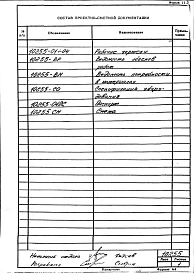 Форма 11.2
СОСТАВ ПРОЕКТНО-СМЕТНОЙ ДОКУМЕНТАЦИИ
№ п/п Обозначение Наименование Примечание
10255-01-04 Рабочие чертежи
10255-ВР Ведомость объемов
работ
10255-ВМ Ведомость потребности
в материалах
10255-СО Спецификация оборудования
10255-ОПС Паспорт
10255 СМ Смета
Начальник отдела
Разработал
10255
Формат А4